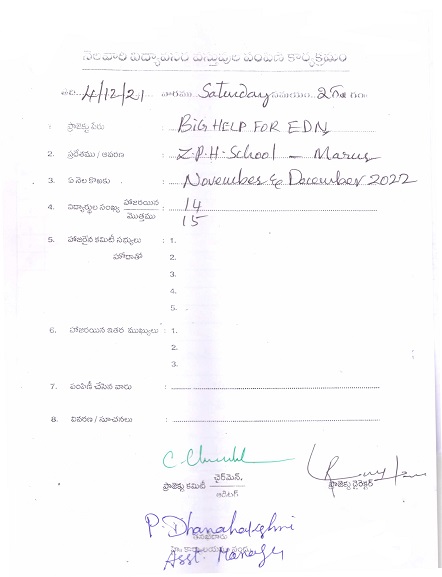 నెలవారి విద్యోపకరణ వస్తువుల పంపిణి కార్యక్రమం
తేది: 4/12/21 వారము Saturday సమయం. 2 గం॥
1. ప్రాజెక్టు పేరు : BiG HELP FOR EDN
2. ప్రదేశము / ఆవరణ : Z.P.H. School –
3. ఏ నెల కొఱకు : November & December 2022
4. విద్యార్థుల సంఖ్య హాజరయిన : 14
మొత్తము 15
5. హాజరైన కమిటీ సభ్యులు : 1.
హోదాతో 2.
3.
4.
5.
6. హాజరయిన ఇతర ముఖ్యులు : 1.
2.
3.
7. పంపిణీ చేసిన వారు :
8. వివరణ / సూచనలు :
ప్రాజెక్టు కమిటీ ఛైర్‌మెన్, ప్రాజెక్టు డైరెక్టర్
ఆడిటర్
Asst. Manager